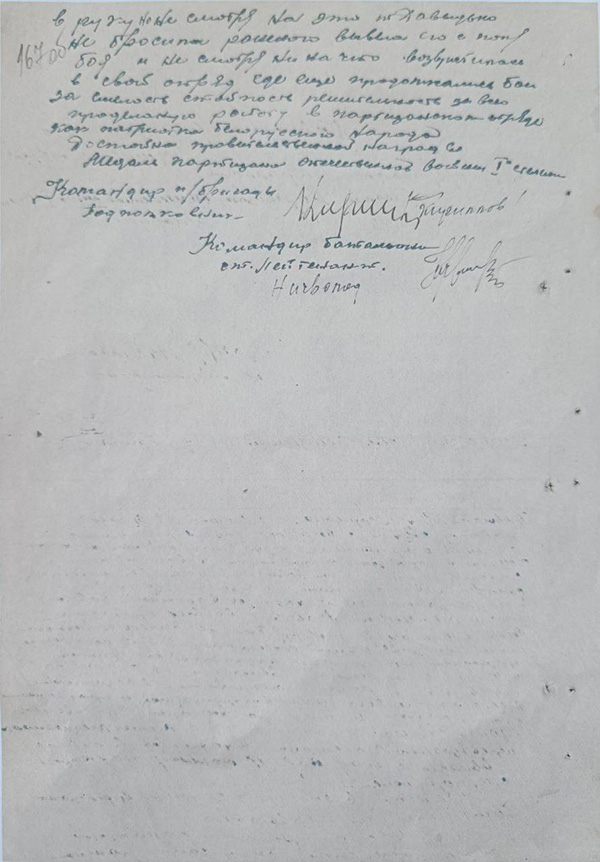 в руку но не смотря на это т. Хавидько
не бросила раненого вывела его с поля
167об боя и не смотря ни на что возвратилась
в свой отряд где еще продолжались бои
За смелость стойкость решительность за всю
проделаную работу в партизанском отряде
как патриотка белорусского народа
достойна правительственной награды
Медаль партизана отечественной войны I степени
Командир п/бригады
Подполковник
Командир батальона
ст. Лейтенант.